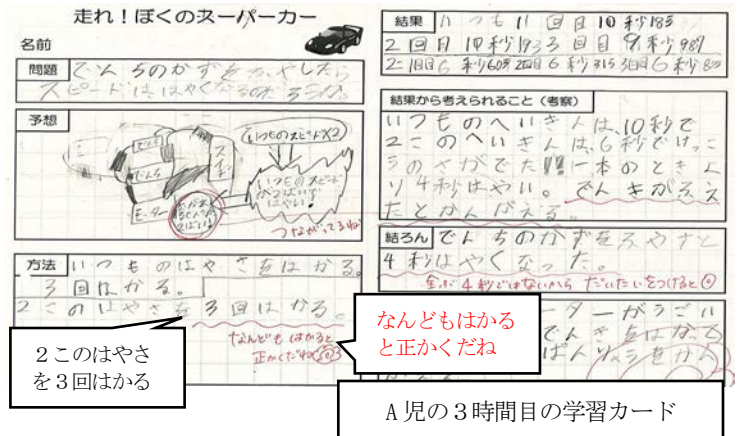 走れ！ぼくのスーパーカー
名前
問題
でんちのかずをふやしたら
スピードははやくなるのだろうか。
予想
でんち
でんち
モーター
スイッチ
いつものスピード×2
いつものスピード
はやい!
つながってるね
方法
いつものはやさをはかる。
3回はかる。
2このはやさを3回はかる。
なんどもはかると
正かくだね
２このはやさ
を３回はかる
なんどもはかる
と正かくだね
結果
いつも1回目10秒185
2回目10秒193 3回目9秒987
2こ1回目6秒603 2回目6秒315 3回目6秒80
結果から考えられること（考察）
いつものへいきんは、10秒で
2このへいきんは、6秒でけっこ
うのさがでた!!!一本のときよ
り4秒はやい。でんきがふえ
たとかんがえる。
結ろん
でんちのかずをふやすと
4秒はやくなった。
4秒ではないから だいたいをつけると◎
ーターがうごい
でんきをはかって
A 児の３時間目の学習カード